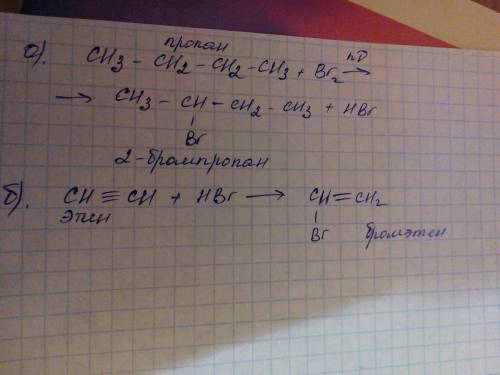 а). пропан
CH3 - CH2 - CH2 - CH3 + Br2 →
→ CH3 - CH - CH2 - CH3 + HBr
Br
2-бромпропан
б). CH ≡ CH + HBr → CH = CH2
этин Br бромэтен